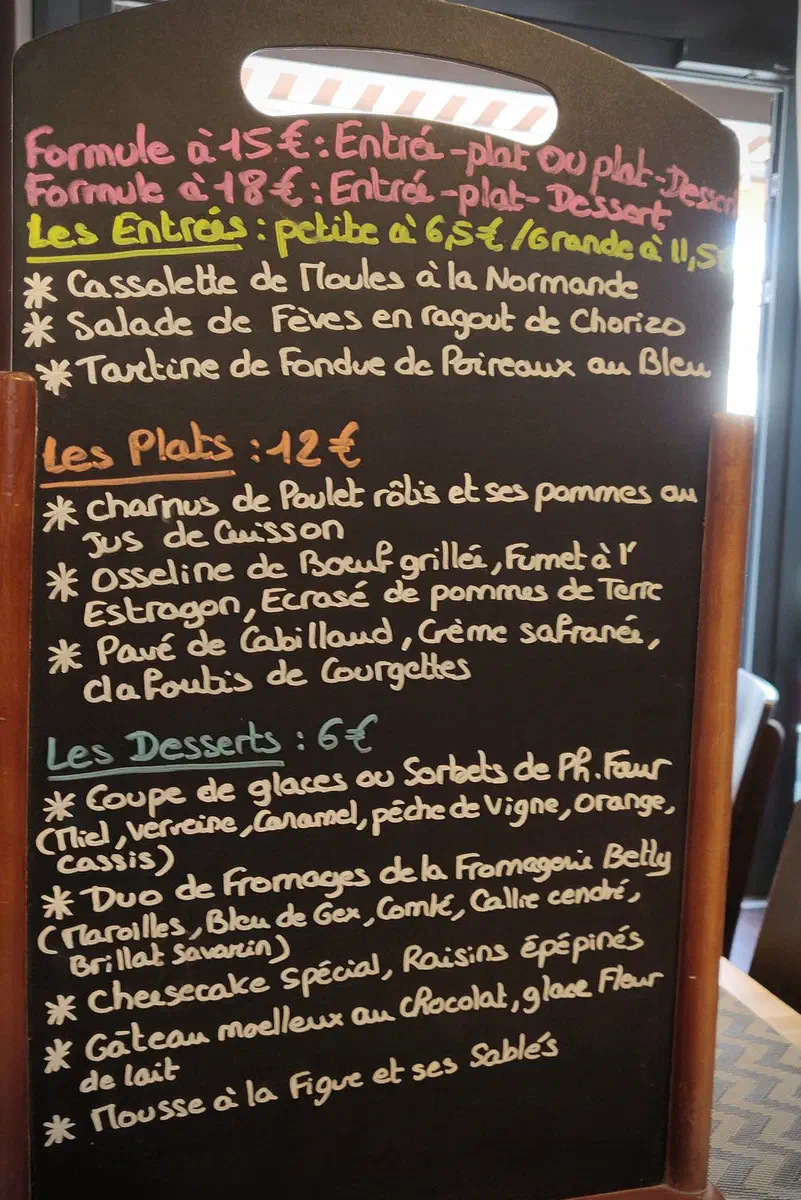 Formule à 15€ : Entrée -plat ou plat-Dessert
Formule à 18€ : Entrée -plat- Dessert
Les Entrées : petite à 6,5€ /Grande à 11,5€
* Cassolette de Moules à la Normande
* Salade de Fèves en ragout de Chorizo
* Tartine de Fondue de Poireaux au Bleu
Les Plats : 12€
* charnus de Poulet rôtis et ses pommes au
Jus de Cuisson
* Osseline de Boeuf grillée, Fumet à l'
Estragon, Ecrasé de pommes de Terre
* Pavé de Cabillaud, Crème safranée,
clafoutis de Courgettes
Les Desserts : 6€
* Coupe de glaces ou Sorbets de Ph. Faur
(Miel, verveine, Caramel, pêche de Vigne, Orange,
Cassis)
* Duo de Fromages de la Fromagerie Betty
(Maroilles, Bleu de Gex, Comté, Callie cendré,
Brillat Savarin)
* Cheesecake Spécial, Raisins épépinés
* Gâteau moelleux au chocolat, glace Fleur
de lait
* Mousse à la Figue et ses Sablés